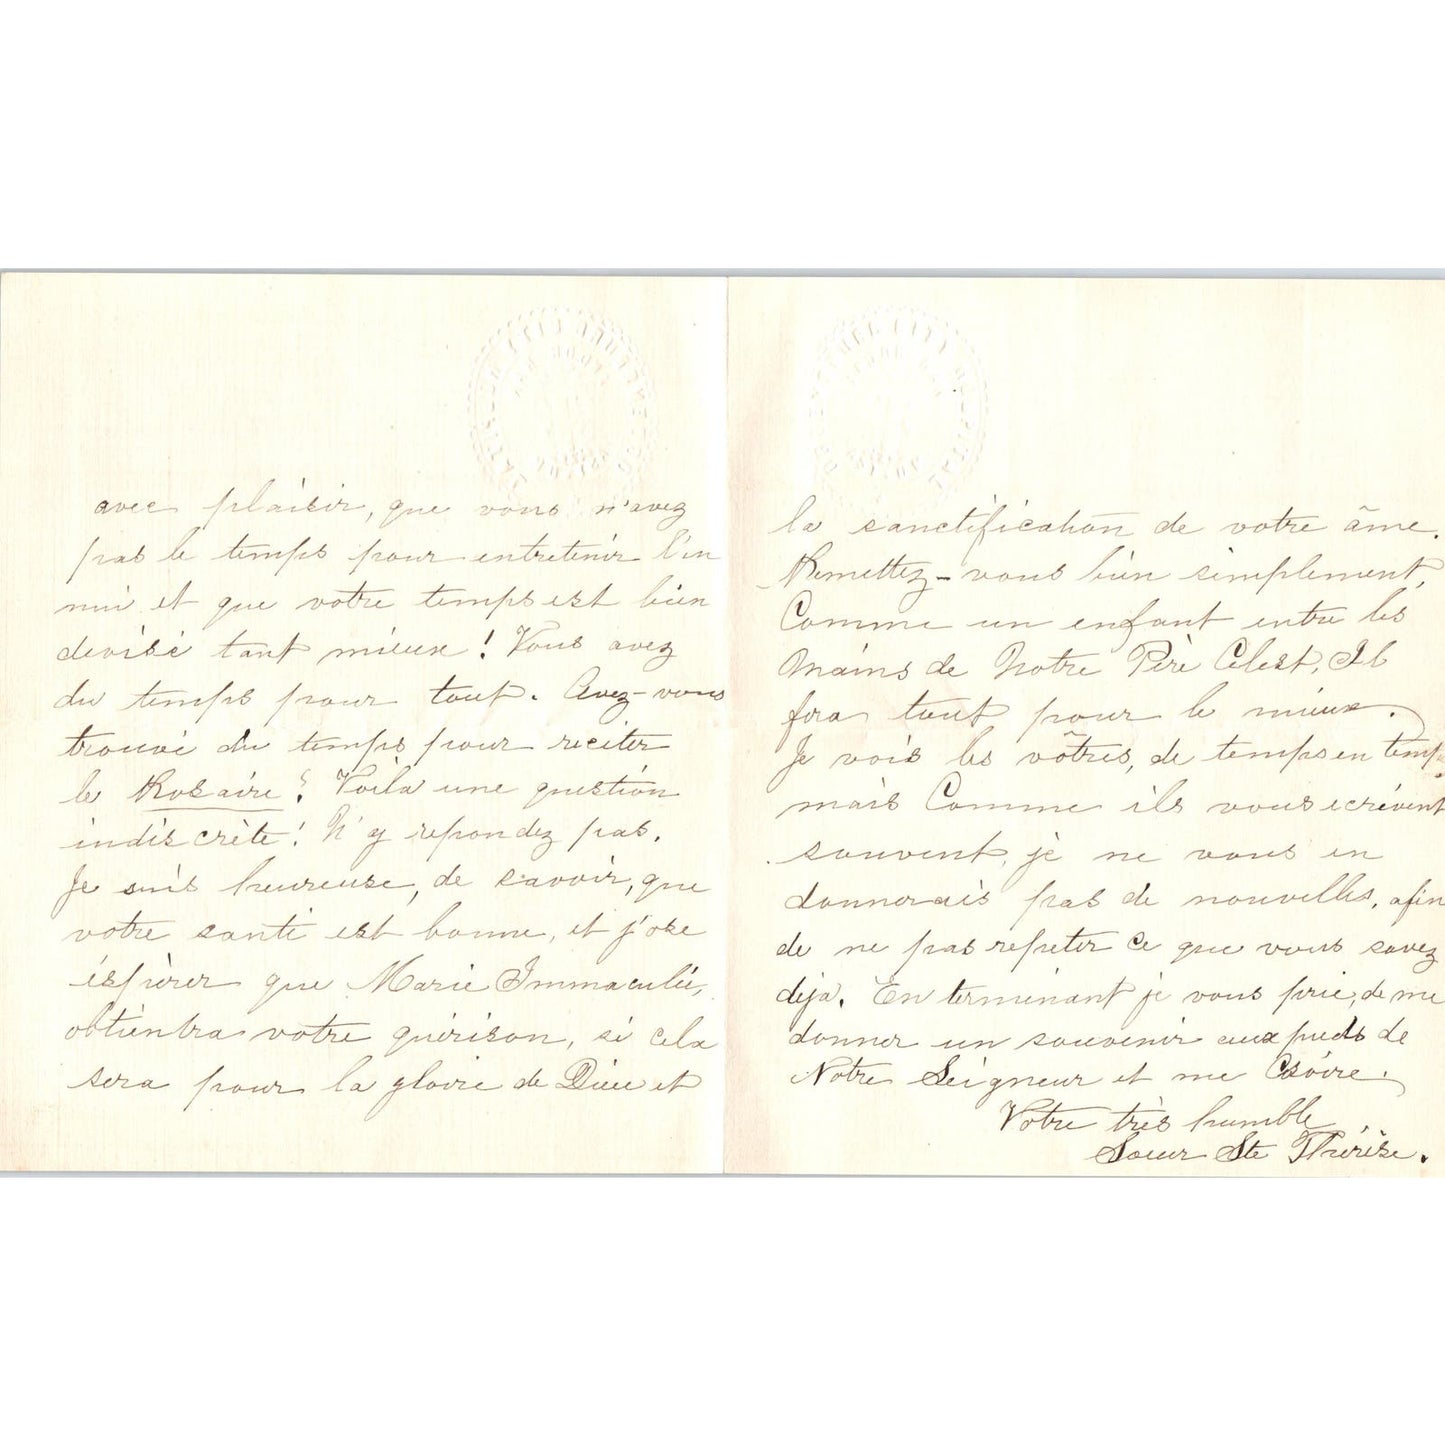 avec plaisir, que vous n'avez
pas le temps pour entretenir l'en
nui et que votre temps est bien
divisé tant mieux! Vous avez
du temps pour tout. Avez-vous
trouvé du temps pour réciter
le Rosaire? Voilà une question
indiscrète! N'y repondez pas.
Je suis heureuse, de savoir, que
votre santé est bonne, et j'ose
éspèrer que Marie Immaculée,
obtiendra votre guérison, si cela
sera pour la gloire de Dieu et
la sanctification de votre âme.
Remettez-vous bien simplement,
Comme un enfant entre les
Mains de Notre Père Celest, Il
fera tout pour le mieux.
Je vois les vôtres, de temps en temps
mais Comme ils vous ecrivent
souvent, je ne vous en
donnerais pas de nouvelles, afin
de ne pas repeter ce que vous savez
déjà. En terminant je vous prie, de me
donner un souvenir aux pieds de
Notre Seigneur et me Croire.
Votre très humble
Soeur Ste Thérèse.